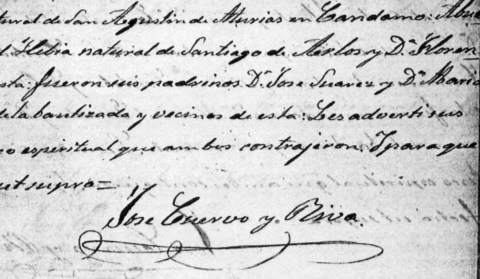 tural de San Agustin de Aturias en Candamo: Abue
Hebia natural de Santiago de Aerlos y Dª Floren
sta: fueron sus padrinos Dn Jose Suarez y Dª Maria
de la bautizada y vecinos de esta: Les adverti sus
co espiritual que ambos contrajeron. Y para que
ut supra=
Jose Cuervo y Riva.